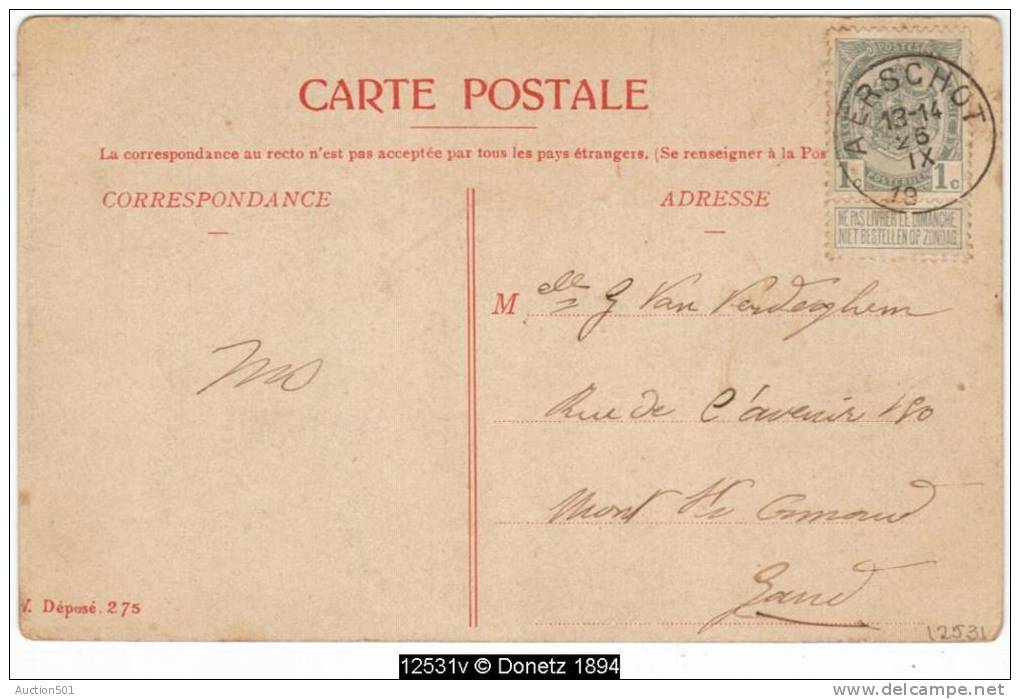 CARTE POSTALE
La correspondance au recto n'est pas acceptée par tous les pays étrangers. (Se renseigner à la Pos
CORRESPONDANCE
ADRESSE
POSTES
POSTERIJEN
1c 1c
NE PAS LIVRER LE DIMANCHE
NIET BESTELLEN OP ZONDAG
AERSCHOT
13-14
26
IX
19
M elle G Van Verdeghem
Rue de l'avenir 150
Mont St Amand
Gand
V. Déposé. 275
12531
12531v © Donetz 1894
Auction501
http://www.delcampe.net